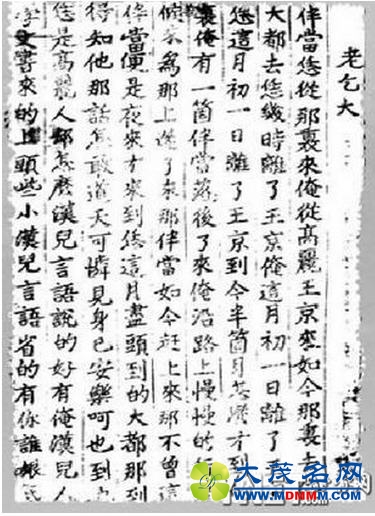 老乞大
伴當恁從那裏來俺從高麗王京來如今那裏去
大都去恁幾時離了王京俺這月初一日離了王
恁這月初一日離了王京到今半箇月怎麽才到
裏俺有一箇伴當落後了來俺沿路上慢慢的行
候來爲那上遲了來那伴當如今赶上來那不曾這
伴當便是夜來才來到恁這月盡頭到的大都那到
得知他那話怎敢道天可憐見身已安樂呵也到
恁是高麗人却怎麽漢兒言語說的好有俺漢兒人
學文書來的上頭些小漢兒言語省的有你誰根
大茂名网
www.MDNMM.com